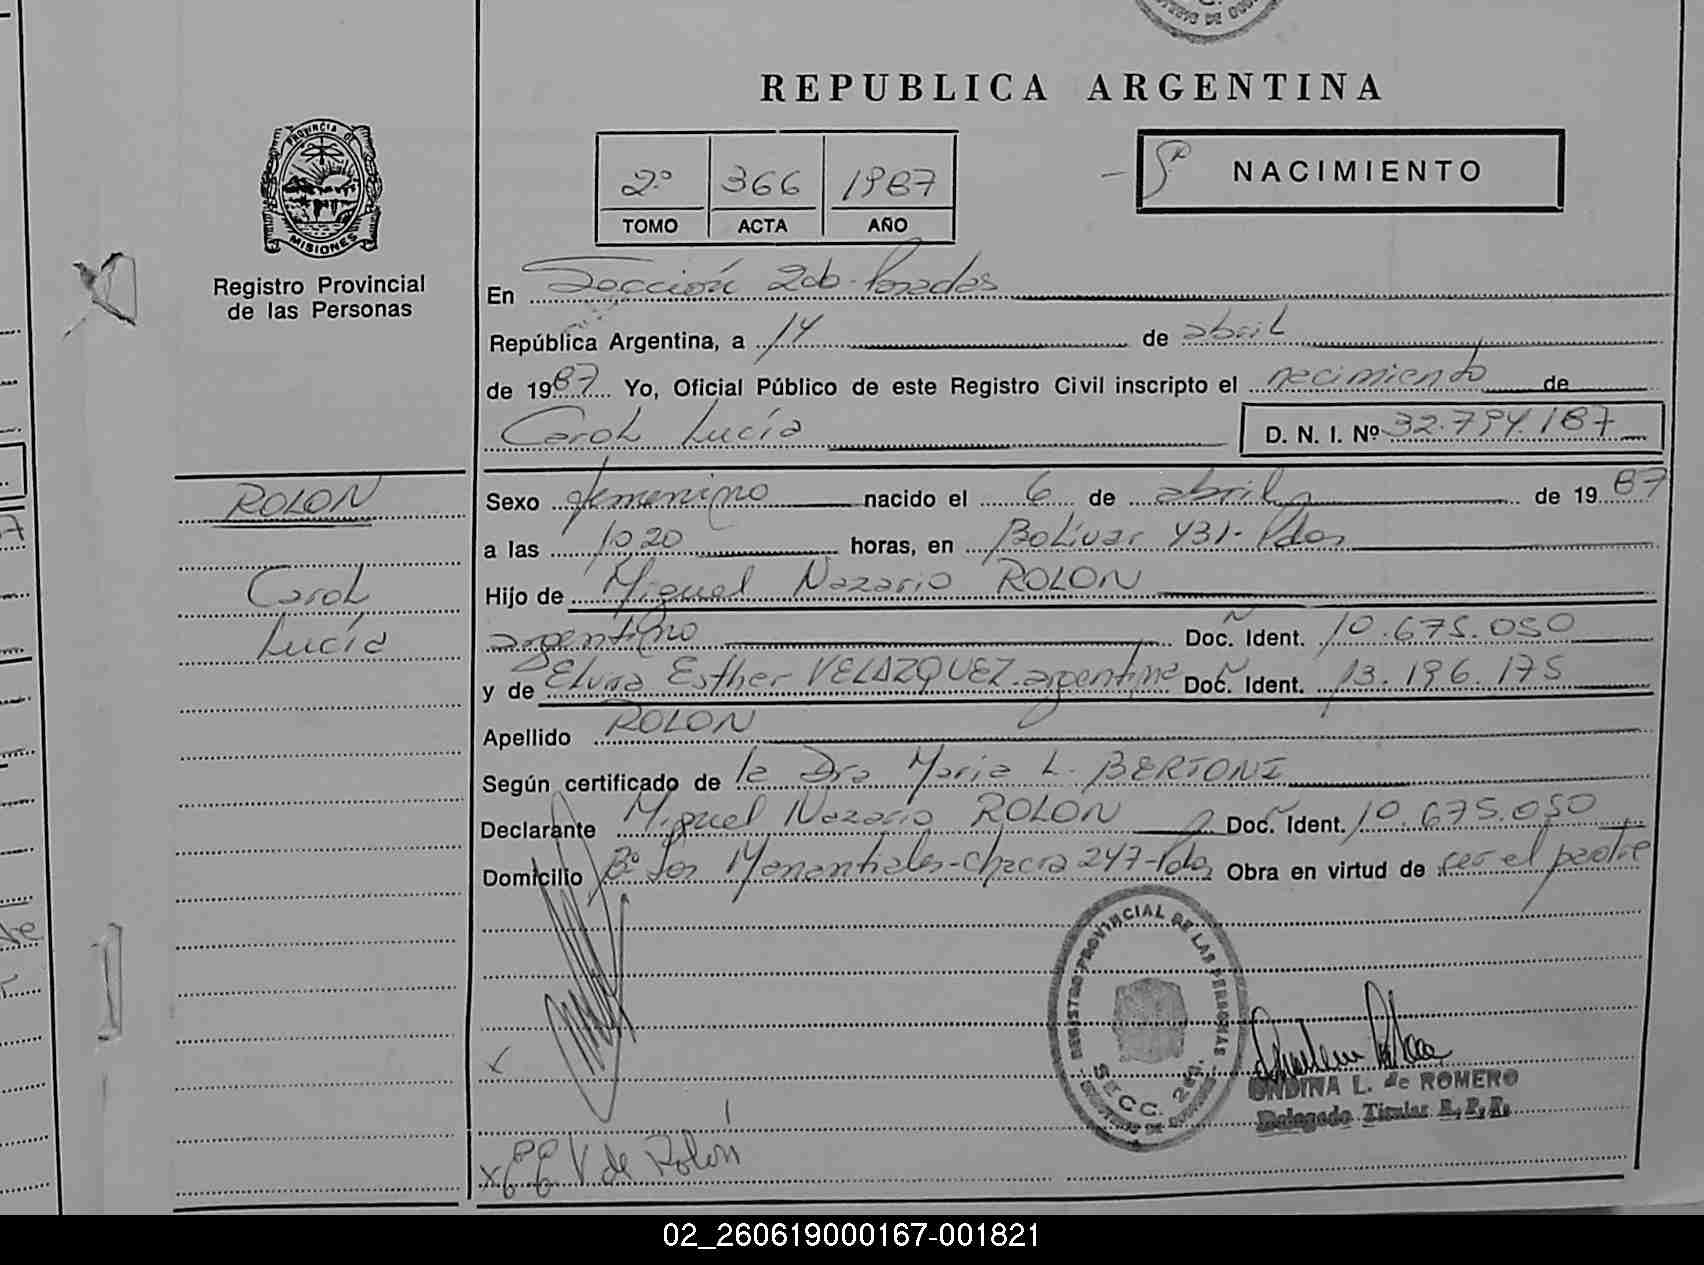 REPUBLICA ARGENTINA
PROVINCIA DE MISIONES
Registro Provincial
de las Personas
2º 366 1987
TOMO ACTA AÑO
NACIMIENTO
En Sección 2da - Posadas
República Argentina, a 14 de abril
de 1987 Yo, Oficial Público de este Registro Civil inscripto el nacimiento de
Carol Lucía D. N. I. Nº 32.794.187
ROLON
Carol
Lucía
Sexo femenino nacido el 6 de abril de 1987
a las 1020 horas, en Bolívar 431 - Pdas
Hijo de Miguel Nazario ROLON
argentino Doc. Ident. 10.675.050
y de Elvira Esther VELAZQUEZ argentina Doc. Ident. 13.196.175
Apellido ROLON
Según certificado de la Dra Maria L. BERTONI
Declarante Miguel Nazario ROLON Doc. Ident. 10.675.050
Domicilio Bº Los Manantiales - chacra 247 - Pdas Obra en virtud de ser el padre
REGISTRO PROVINCIAL DE LAS PERSONAS
SECC. 2da.
ONDINA L. de ROMERO
Delegado Titular R. P. P.
x E E V de Rolón
02_260619000167-001821